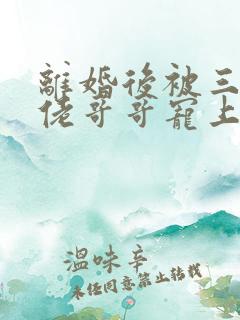 離婚後被三
佬哥哥寵上
溫味辛
未經同意禁止轉載